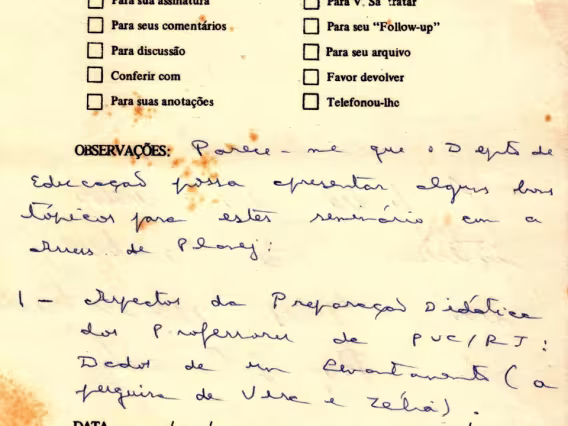 Para sua assinatura
Para V. Sa tratar
Para seus comentários
Para seu "Follow-up"
Para discussão
Para seu arquivo
Conferir com
Favor devolver
Para suas anotações
Telefonou-lhe
OBSERVAÇÕES: Parece-me que o Depto de
Educação possa apresentar alguns bons
tópicos para este seminário com a
de Planej:
1 - Aspectos da Preparação Didática
dos Professores da PUC/RJ:
Dados de um Levantamento (a
pesquisa de Vera e Zélia).
DATA / /